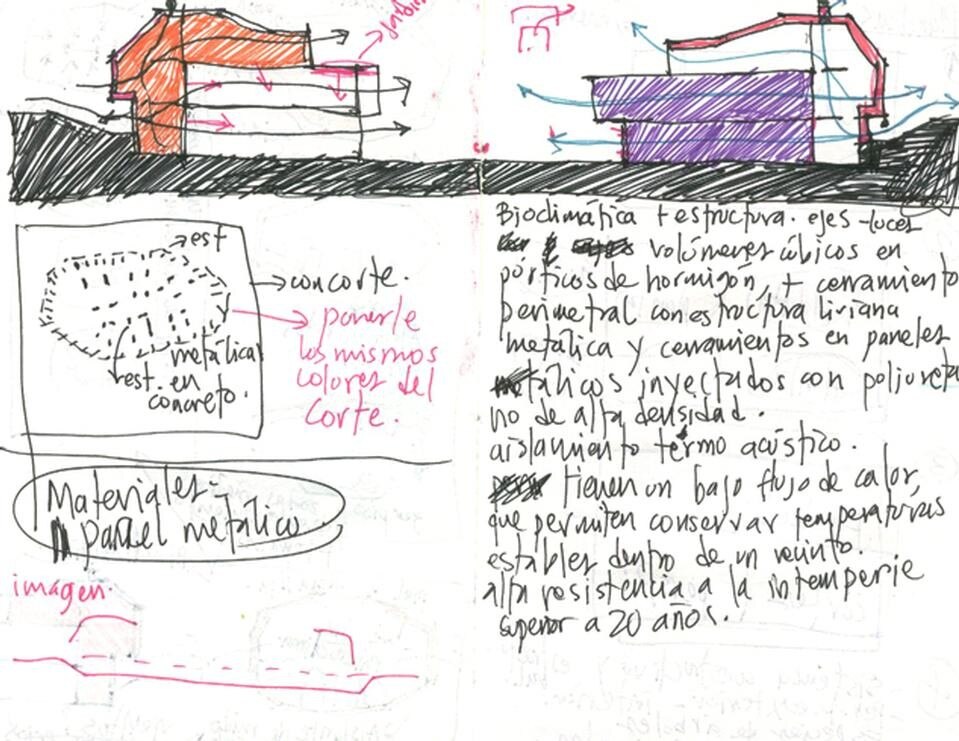 jardin
est
concorte.
ponerle
los mismos
colores del
corte.
metálica
est. en
concreto.
Materiales-
panel metálico
imagen.
Bioclimática + estructura. ejes-luces
volúmenes cúbicos en
pórticos de hormigón, + cerramiento
perimetral con estructura liviana
metálica y cerramientos en paneles
metálicos inyectados con poliureta
no de alta densidad.
aislamiento térmo acústico.
tienen un bajo flujo de calor,
que permiten conservar temperaturas
estables dentro de un recinto.
alta resistencia a la intemperie
superior a 20 años.